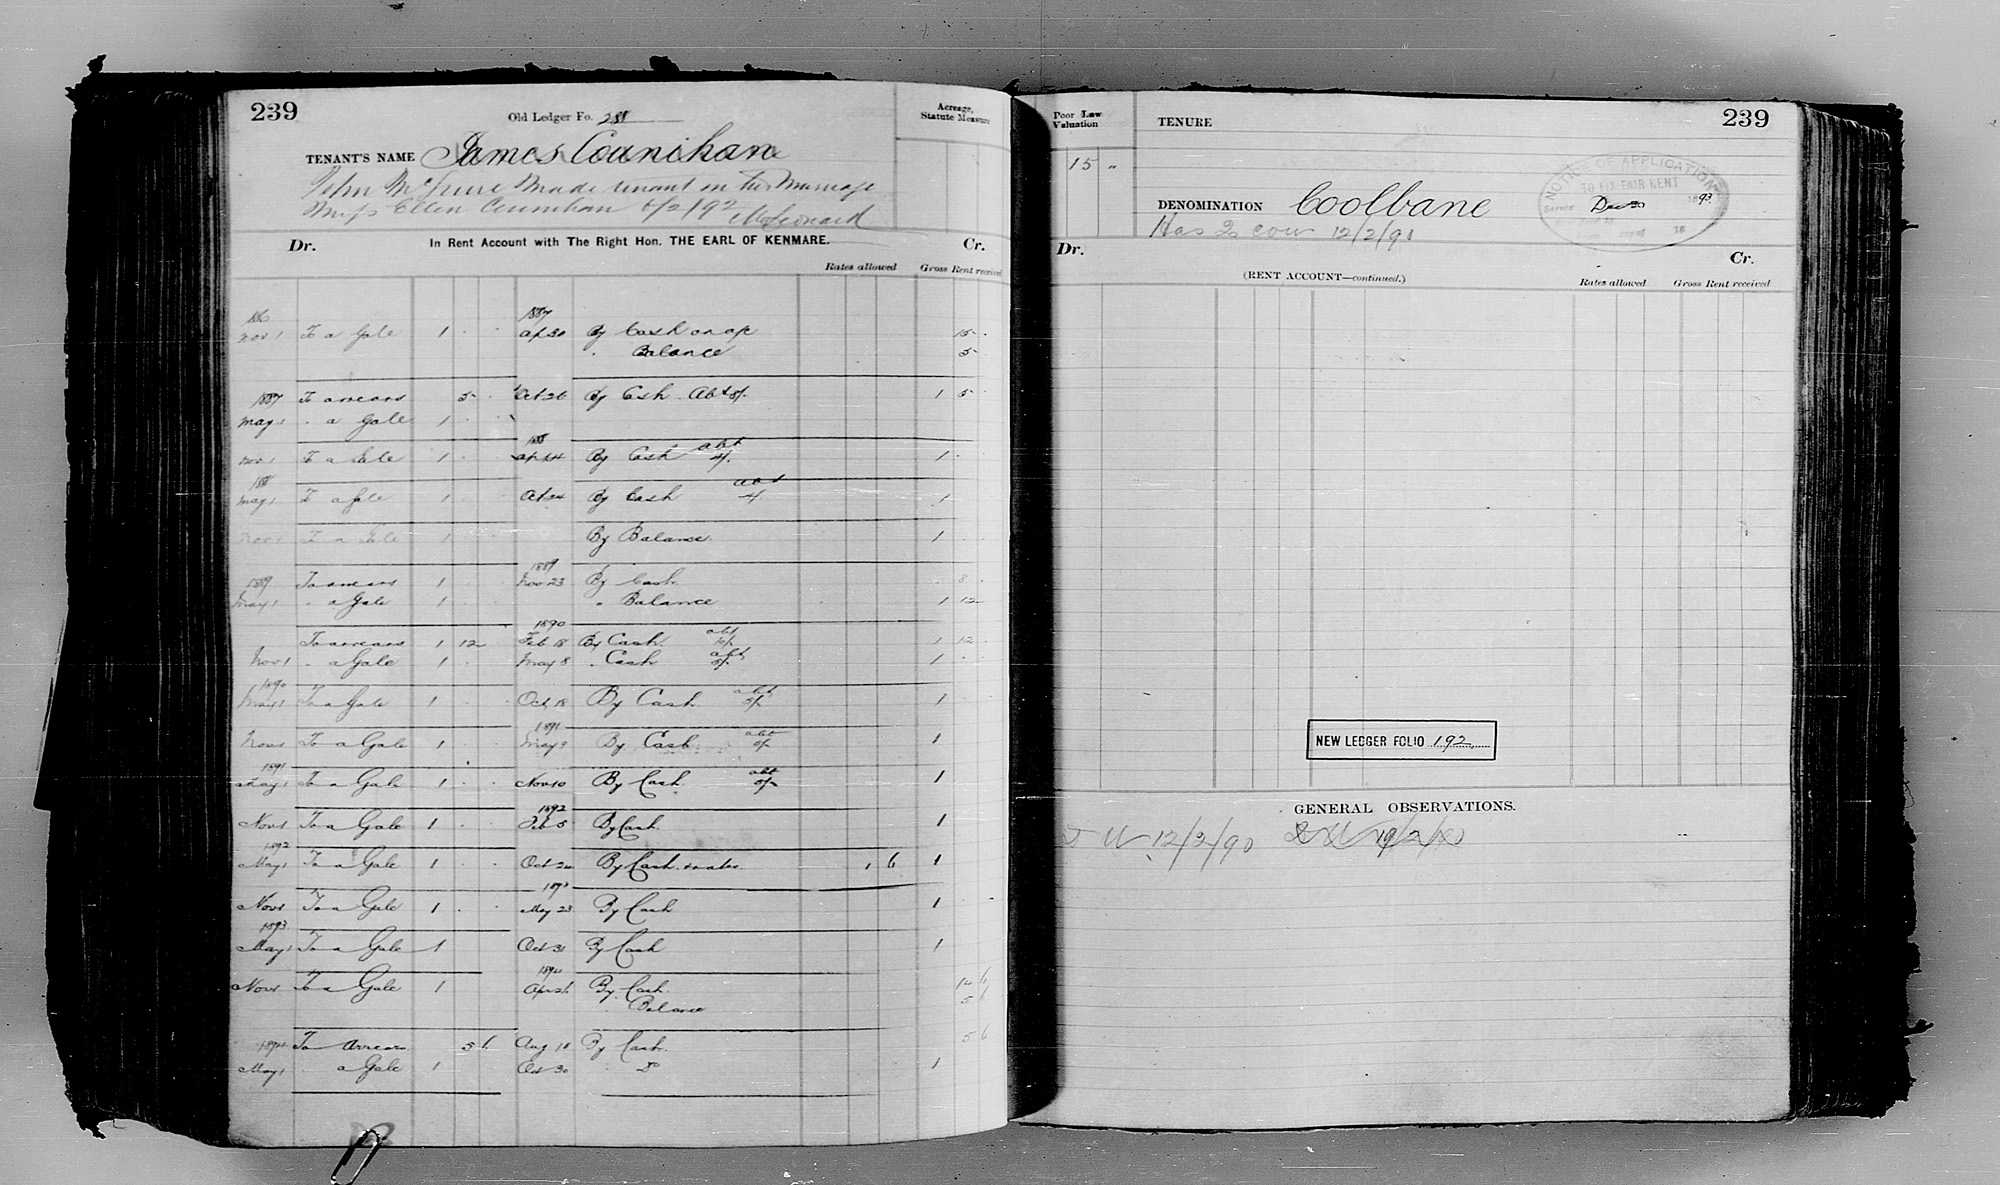 239
Old Ledger Fo. 288
Acreage, Statute Measure
TENANT'S NAME James Counihan
John McGuire Made tenant on his Marriage
Miss Ellen Counihan 6/2/92 McLeonard
Dr. In Rent Account with The Right Hon. THE EARL OF KENMARE. Cr.
Rates allowed Gross Rent received
86 1887
Nov 1 To a Gale 1 Ap 30 By Cash on a/c 15
" Balance 5
1887 To arrears 5 Oct 26 By Cash Abt 5/- 1 5
May 1 " a Gale 1
1888 abt
Nov 1 To a Gale 1 Ap 14 By Cash 4/- 1
188 abt
May 1 To a Gale 1 Oct 24 By Cash 4/ 1
Nov 1 To a Gale 1 By Balance 1
1889
1889 To arrears 1 Nov 23 By Cash 8
May 1 " a Gale 1 " Balance 1 12
1890 abt
To arrears 1 12 Feb 18 By Cash 1 12
Nov 1 " a Gale 1 May 8 " Cash abt 5/- 1
1890 abt
May 1 To a Gale 1 Oct 18 By Cash 5/- 1
1891 abt
Nov 1 To a Gale 1 May 9 By Cash 5/- 1
1891 abt
May 1 To a Gale 1 Nov 10 By Cash 5/- 1
1892
Nov 1 To a Gale 1 Feb 5 By Cash 1
1892
May 1 To a Gale 1 Oct 24 By Cash & rates 1 6 1
1893
Nov 1 To a Gale 1 May 23 By Cash 1
1893
May 1 To a Gale 1 Oct 31 By Cash 1
1894
Nov 1 To a Gale 1 Ap 26 By Cash 14 6
Balance 5 6
1894 To Arrears 5 6 Aug 18 By Cash 5 6
May 1 " a Gale 1 Oct 30 " Do 1
239
Poor Law Valuation
TENURE
15 "
NOTICE OF APPLICATION
TO FIX FAIR RENT
Service Dec 20 1893
18
DENOMINATION Coolbane
Has 2 cow 12/2/90
Dr. Cr.
(RENT ACCOUNT—continued.)
Rates allowed Gross Rent received
NEW LEDGER FOLIO 192
GENERAL OBSERVATIONS.
12/2/90